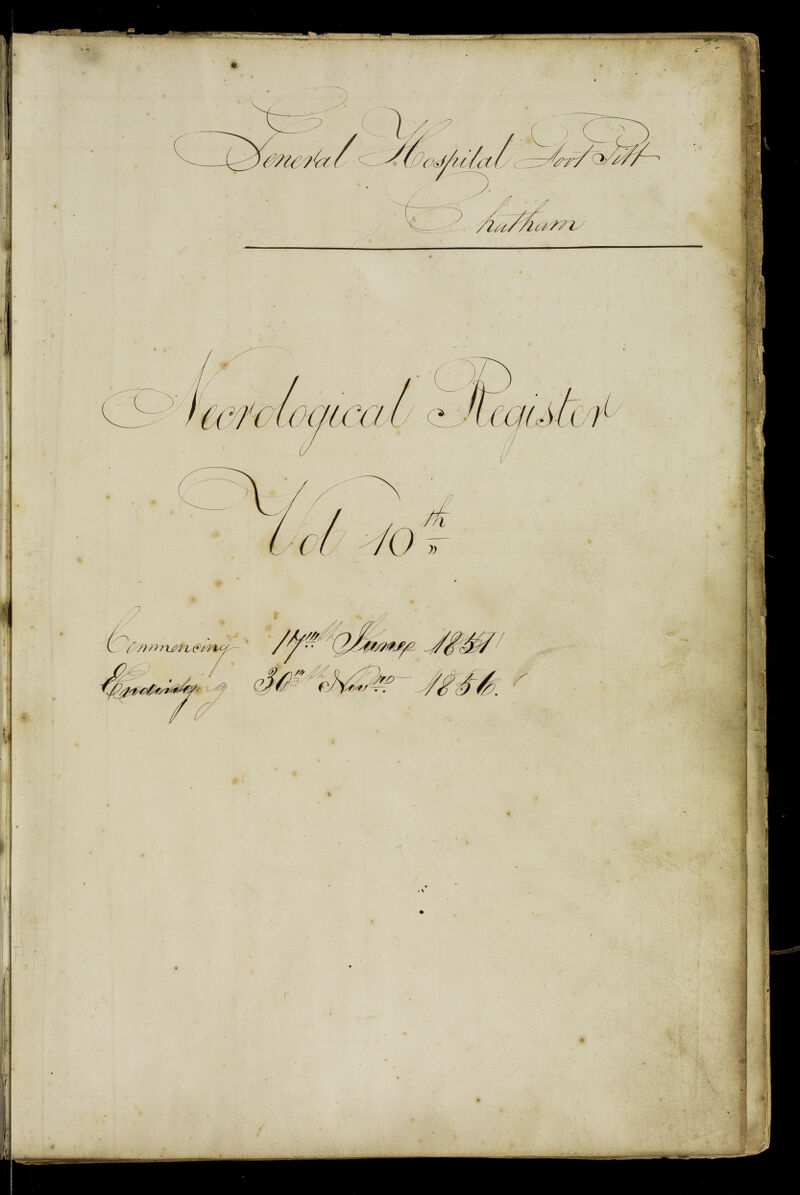 General Hospital Fort Pitt
Chatham
Necrological Register
Vol 10th
Commencing 17th June 1851
Ending 30th Novr 1856.